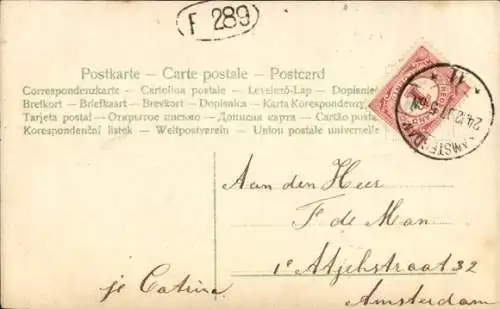 F 289
Postkarte – Carte postale – Postcard
Correspondenzkarte – Cartolina postale – Levelező-Lap – Dopisnice
Brefkort – Briefkaart – Brevkort – Dopisnica – Karta Korespondenzy
Tarjeta postal – Открытое письмо – Дописна карта – Cartão postal
Korespondenční lístek – Weltpostverein – Union postale universelle
AMSTERDAM
24.12.
Aan den Heer
F de Man
1e Atjehstraat 32
Amsterdam
je Catrina